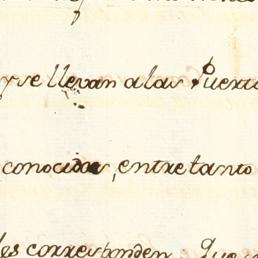 y se llevan a las Puert
conocidos, entretanto
les corresponden. Que